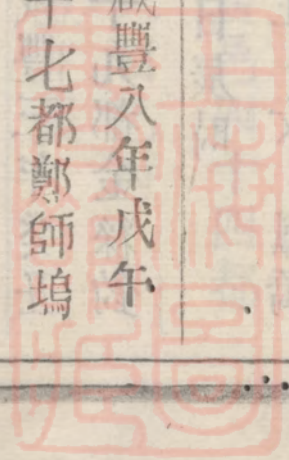 咸豐八年戊午
十七都鄭師塢